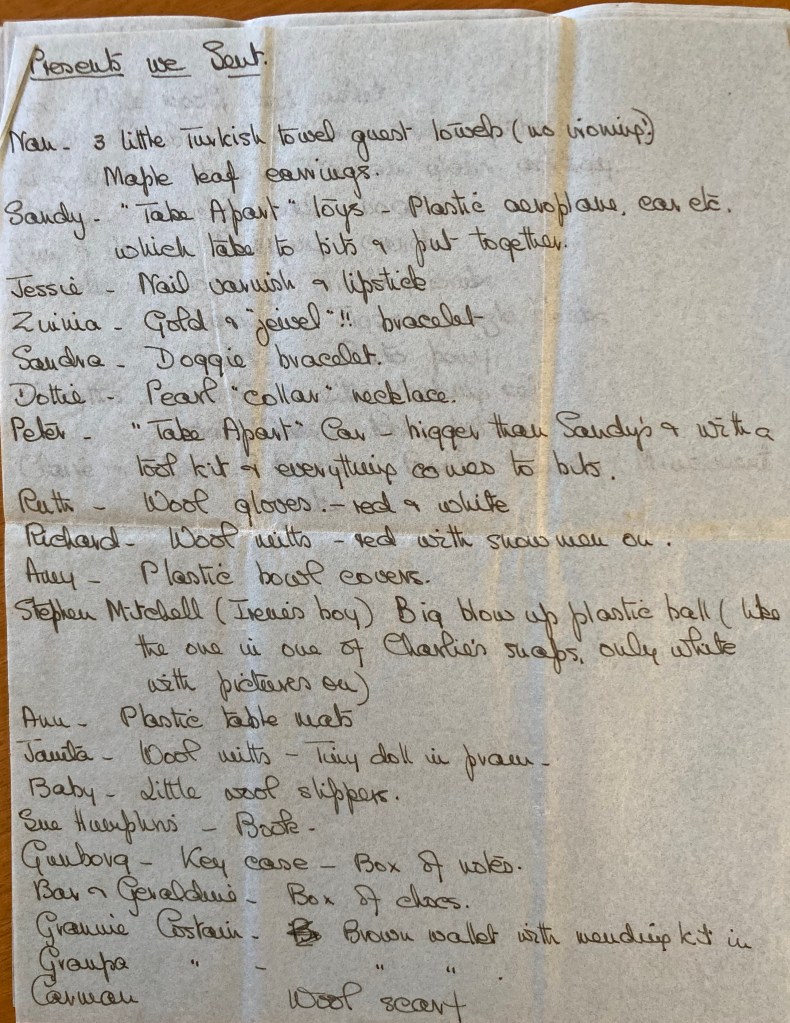 Presents we Sent.
Nan - 3 little Turkish towel guest towels (no ironing!)
Maple leaf earrings.
Sandy - "Take Apart" toys - Plastic aeroplane, car etc.
which take to bits & put together.
Jessie - Nail varnish & lipstick
Zuinia - Gold & "jewel"!! bracelet
Sandra - Doggie bracelet.
Dottie - Pearl "collar" necklace.
Peter - "Take Apart" Car - bigger than Sandy's & with a
tool kit & everything comes to bits.
Ruth - Wool gloves. - red & white
Richard - Wool mitts - red with snowmen on.
Amy - Plastic bowl covers.
Stephen Mitchell (Irene's boy) Big blow up plastic ball (like
the one in one of Charlie's snaps, only white
with pictures on)
Ann - Plastic table mats
Janita - Wool mitts - Tiny doll in pram -
Baby - Little wool slippers.
Sue - Book -
Gunborg - Key case - Box of notes.
Bar & Geraldine - Box of chocs.
Grannie Costain - Brown wallet with mending kit in
Granpa " - " "
Carman Wool scarf